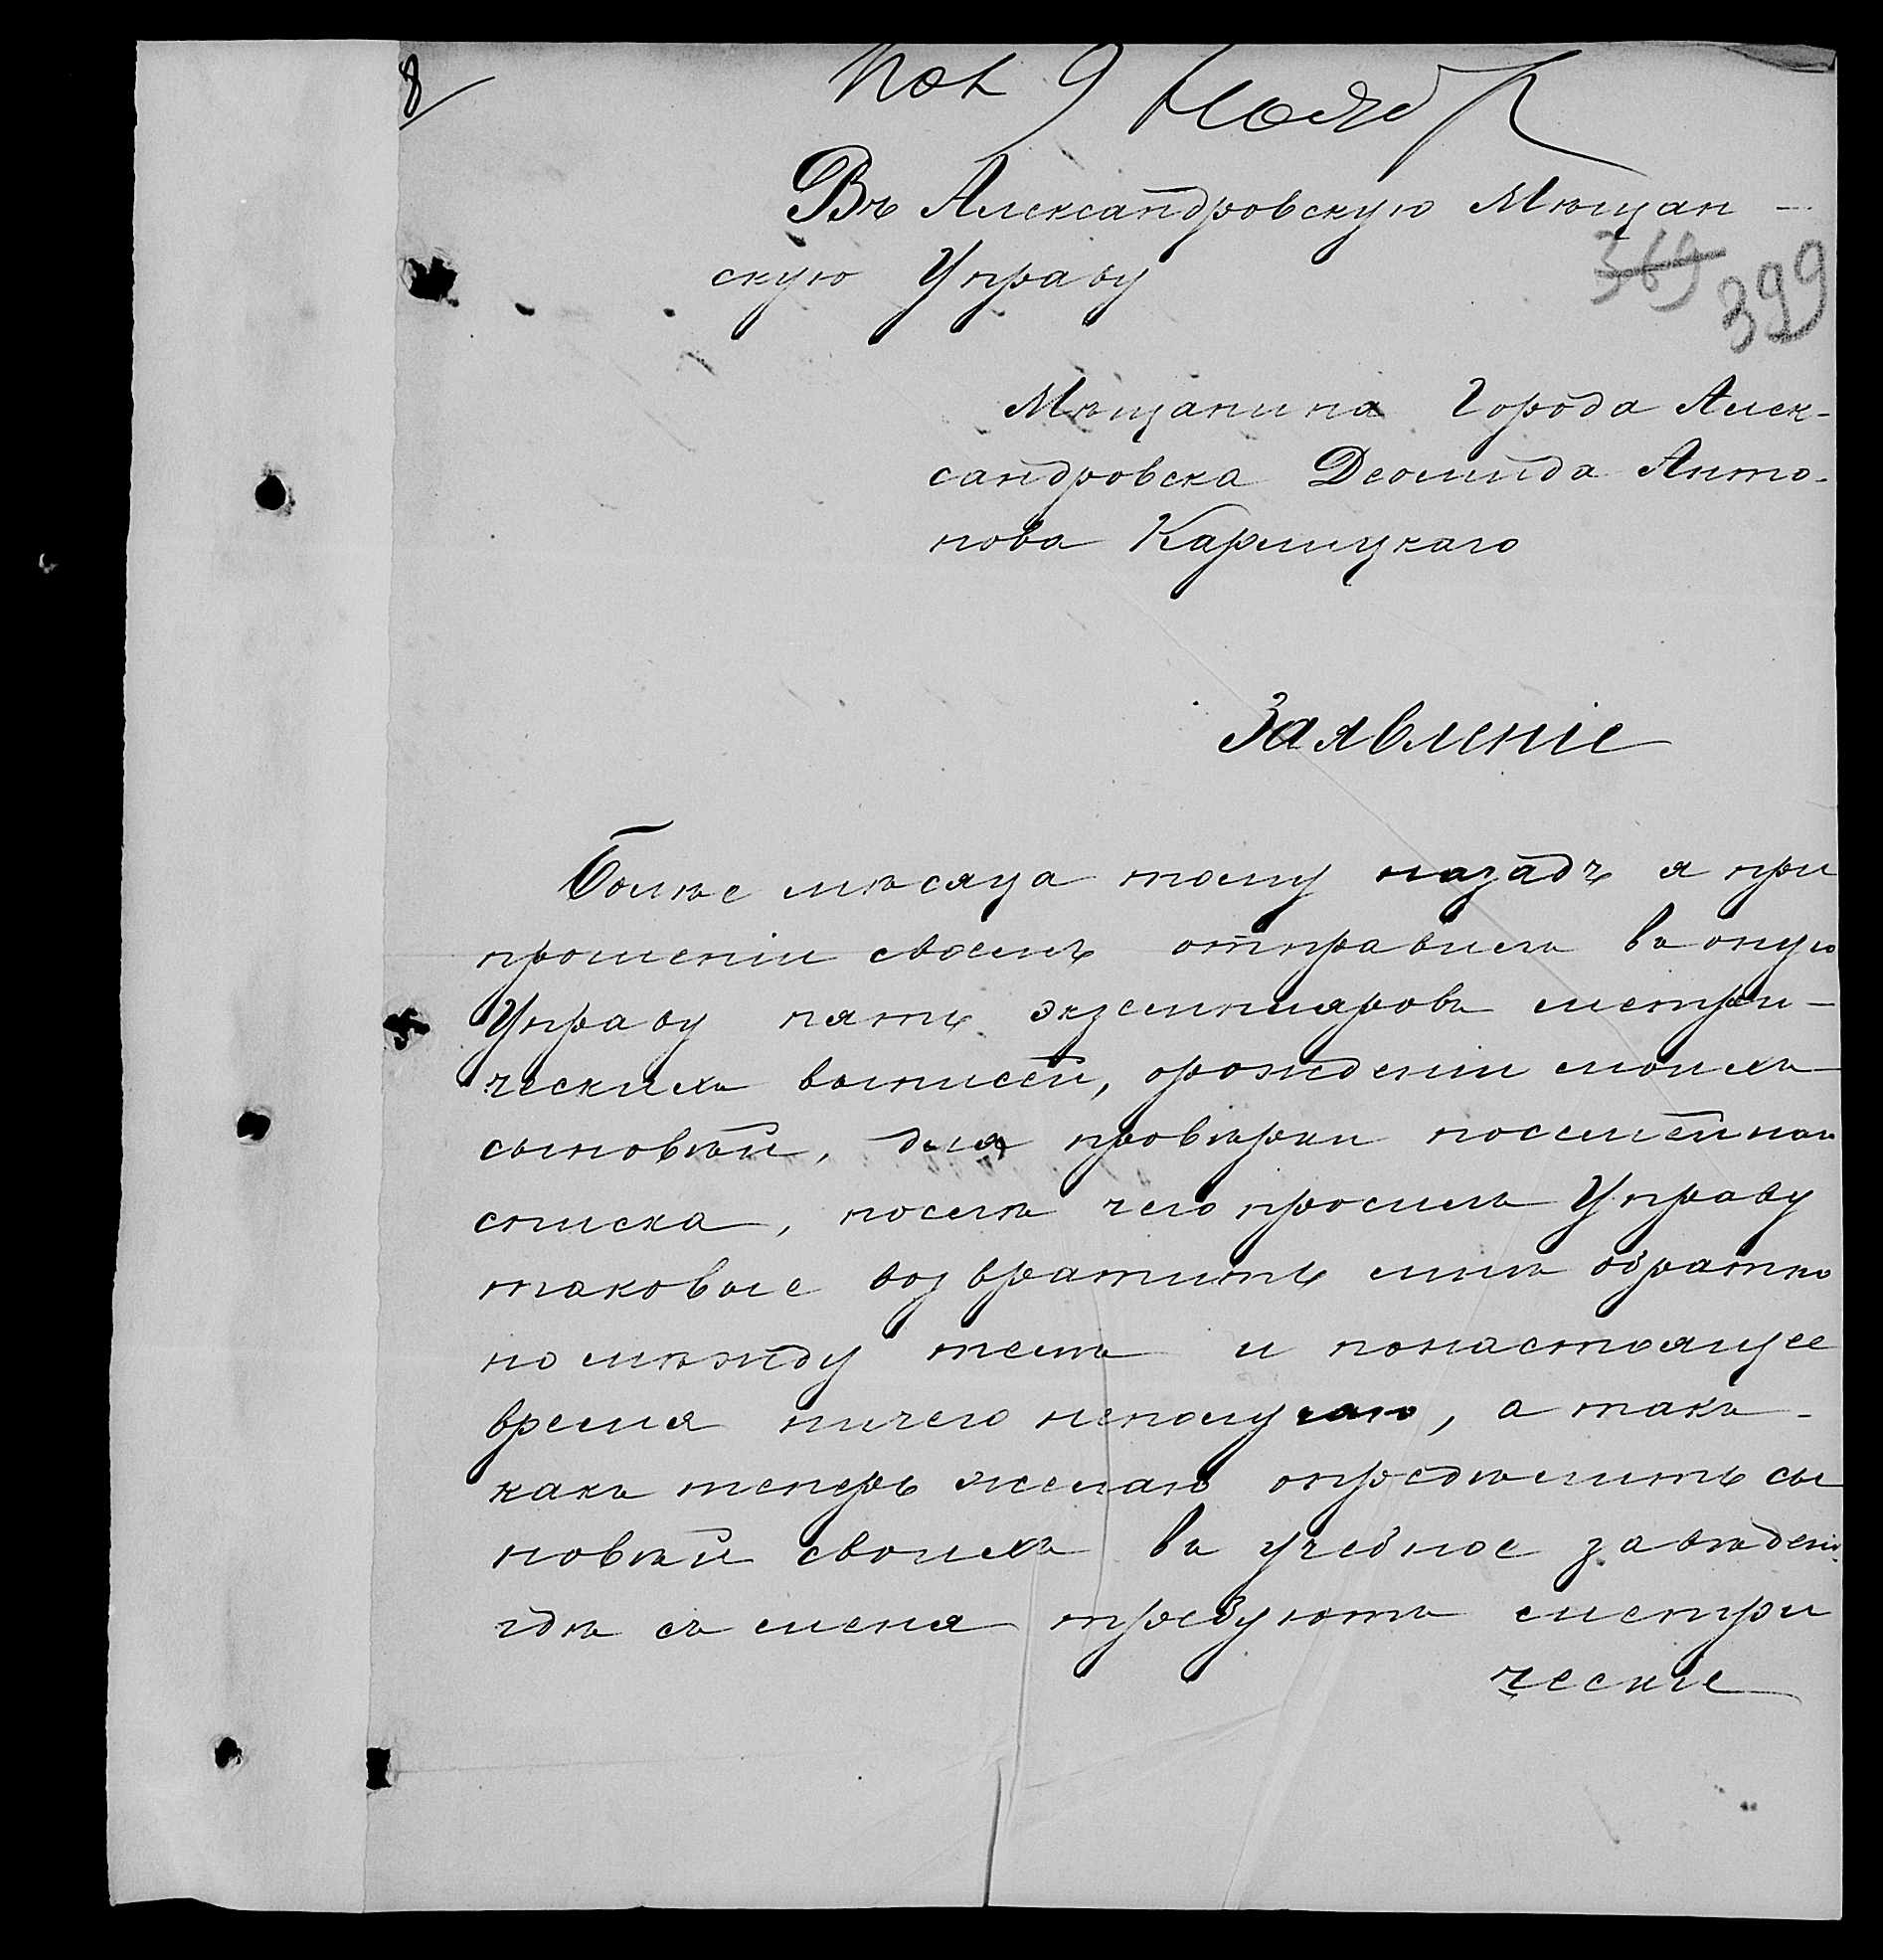 8
Пол 9 Нояб
Въ Александровскую Мѣщан-
скую Управу
369 399
Мѣщанина Города Алек-
сандровска Деомида Анто-
нова Кармицкаго
Заявленіе
Болѣе мѣсяца тому назадъ я при
прошеніи своемъ отправилъ въ оную
Управу пять экземпляровъ метри-
ческихъ выписей, орожденіи моихъ
сыновѣй, для провѣрки посемейнаго
списка, послѣ чего просилъ Управу
таковые возвратить мнѣ обратно
но мѣжду темъ и понастоящее
время ничего неполучаю, а такъ-
какъ теперь желаю опредѣлить сы
новѣй своихъ въ учебное завѣдені
гдѣ съ меня требуютъ метри
ческіе